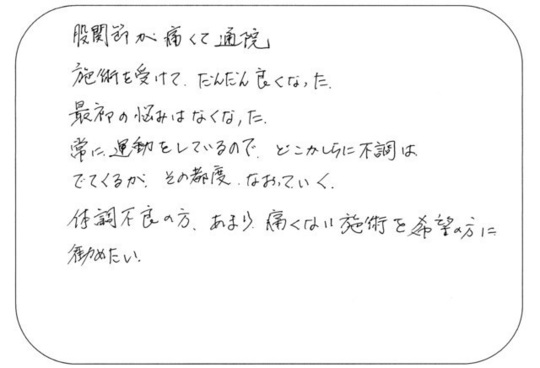 股関節が痛くて通院
施術を受けて、だんだん良くなった。
最初の悩みはなくなった。
常に、運動をしているので、どこかしらに不調は
でてくるが、その都度、なおっていく。
体調不良の方、あまり痛くない施術を希望の方に
勧めたい。